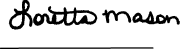 Loretta Mason